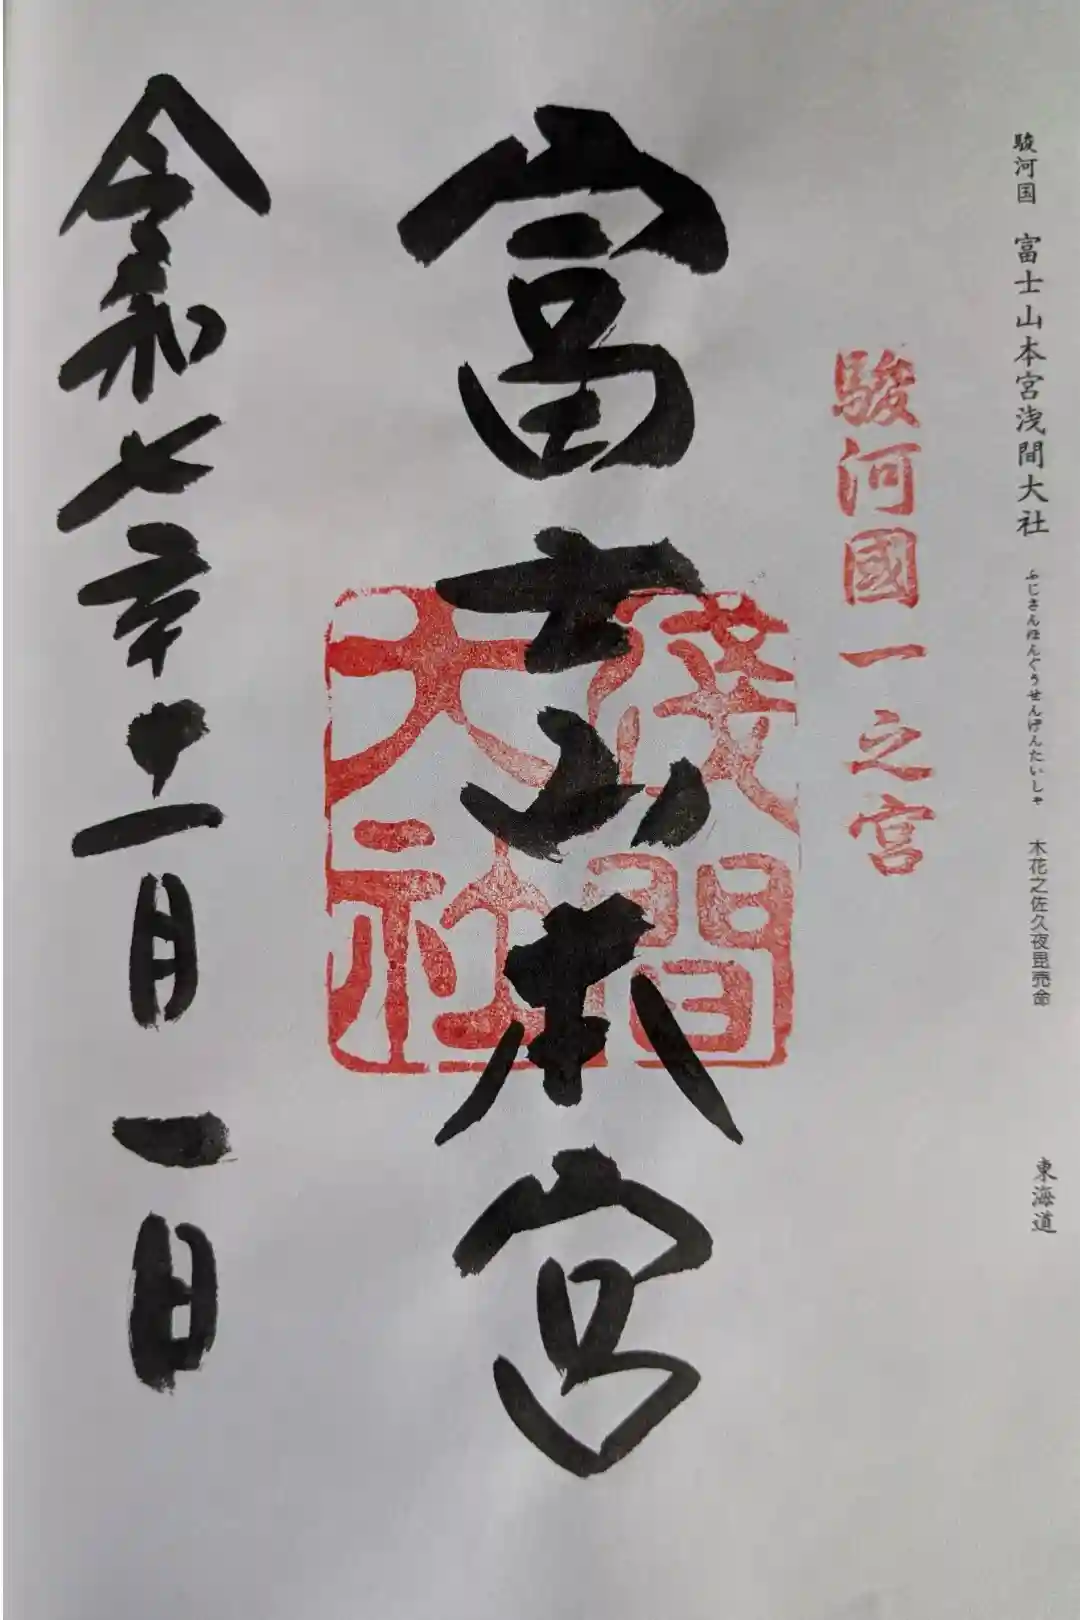 駿河国 富士山本宮浅間大社 ふじさんほんぐうせんげんたいしゃ 木花之佐久夜毘売命 東海道
駿河國一之宮
富士山本宮
淺間大社
令和七年十一月一日